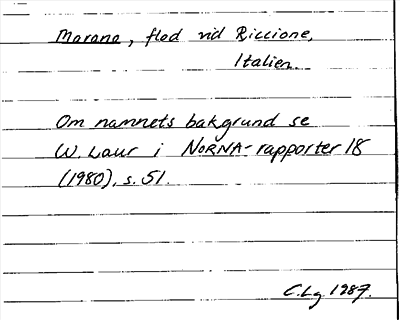 Marano, flod vid Riccione,
Italien.
Om namnets bakgrund se
W. Laur i NORNA-rapporter 18
(1980), s. 51.
C.Lg 1987.